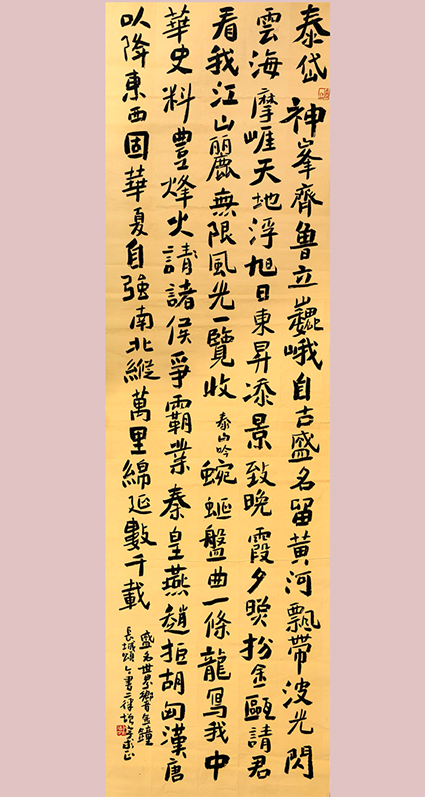 泰岱 神峯齊魯立巍峨自古盛名留黃河飄帶波光閃
雲海摩崖天地浮旭日東昇添景致晚霞夕照扮金甌請君
看我江山麗無限風光一覽收 泰山吟 蜿蜒盤曲一條龍寫我中
華史料豐烽火請諸侯爭霸業秦皇燕趙拒胡匈漢唐
以降東西固華夏自強南北縱萬里綿延數千載
盛名世界響金鐘
長城頌 今書二律求正